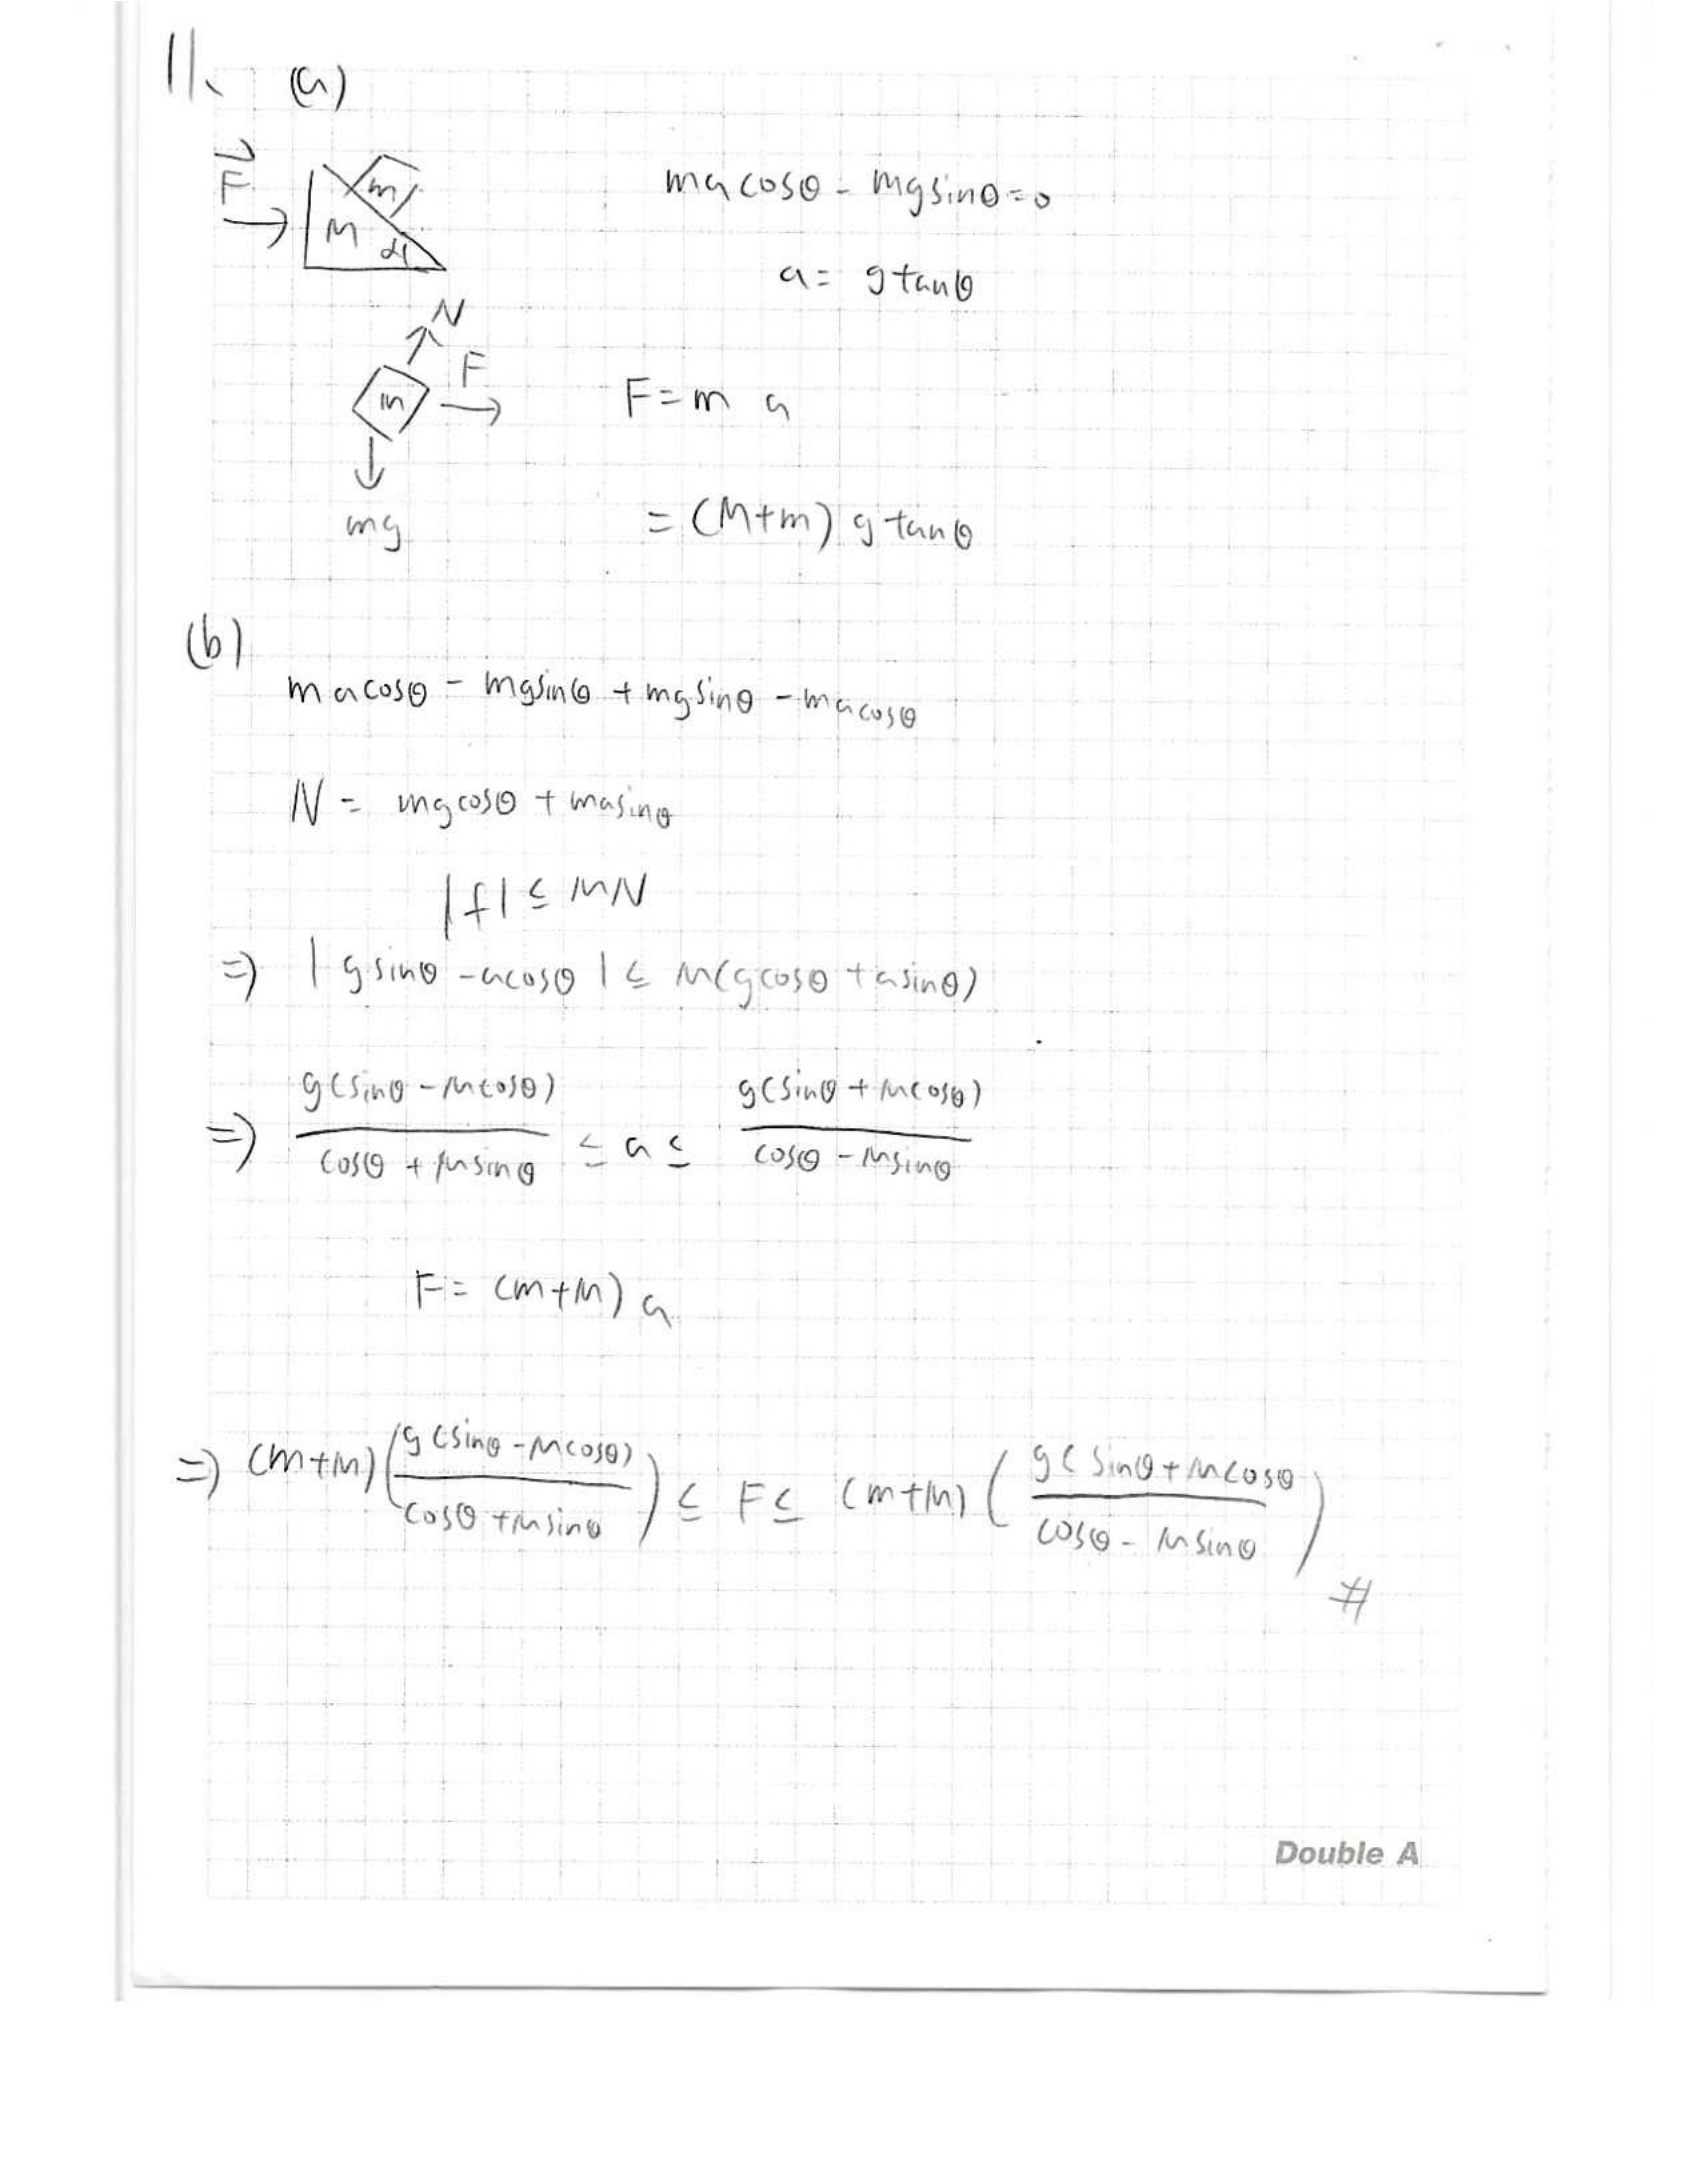 11. (a)
F
m
M α
N
m F
mg
ma cosθ - mg sinθ = 0
a = g tanθ
F = m a
= (M+m) g tanθ
(b)
ma cosθ - mg sinθ + mg sinθ - ma cosθ
N = mg cosθ + ma sinθ
|f| ≤ μN
⇒ |g sinθ - a cosθ| ≤ μ(g cosθ + a sinθ)
⇒ g(sinθ - μcosθ) / cosθ + μsinθ ≤ a ≤ g(sinθ + μcosθ) / cosθ - μsinθ
F = (m+M) a
⇒ (m+M) (g(sinθ - μcosθ) / cosθ + μsinθ) ≤ F ≤ (m+M) (g(sinθ + μcosθ / cosθ - μsinθ) #
Double A